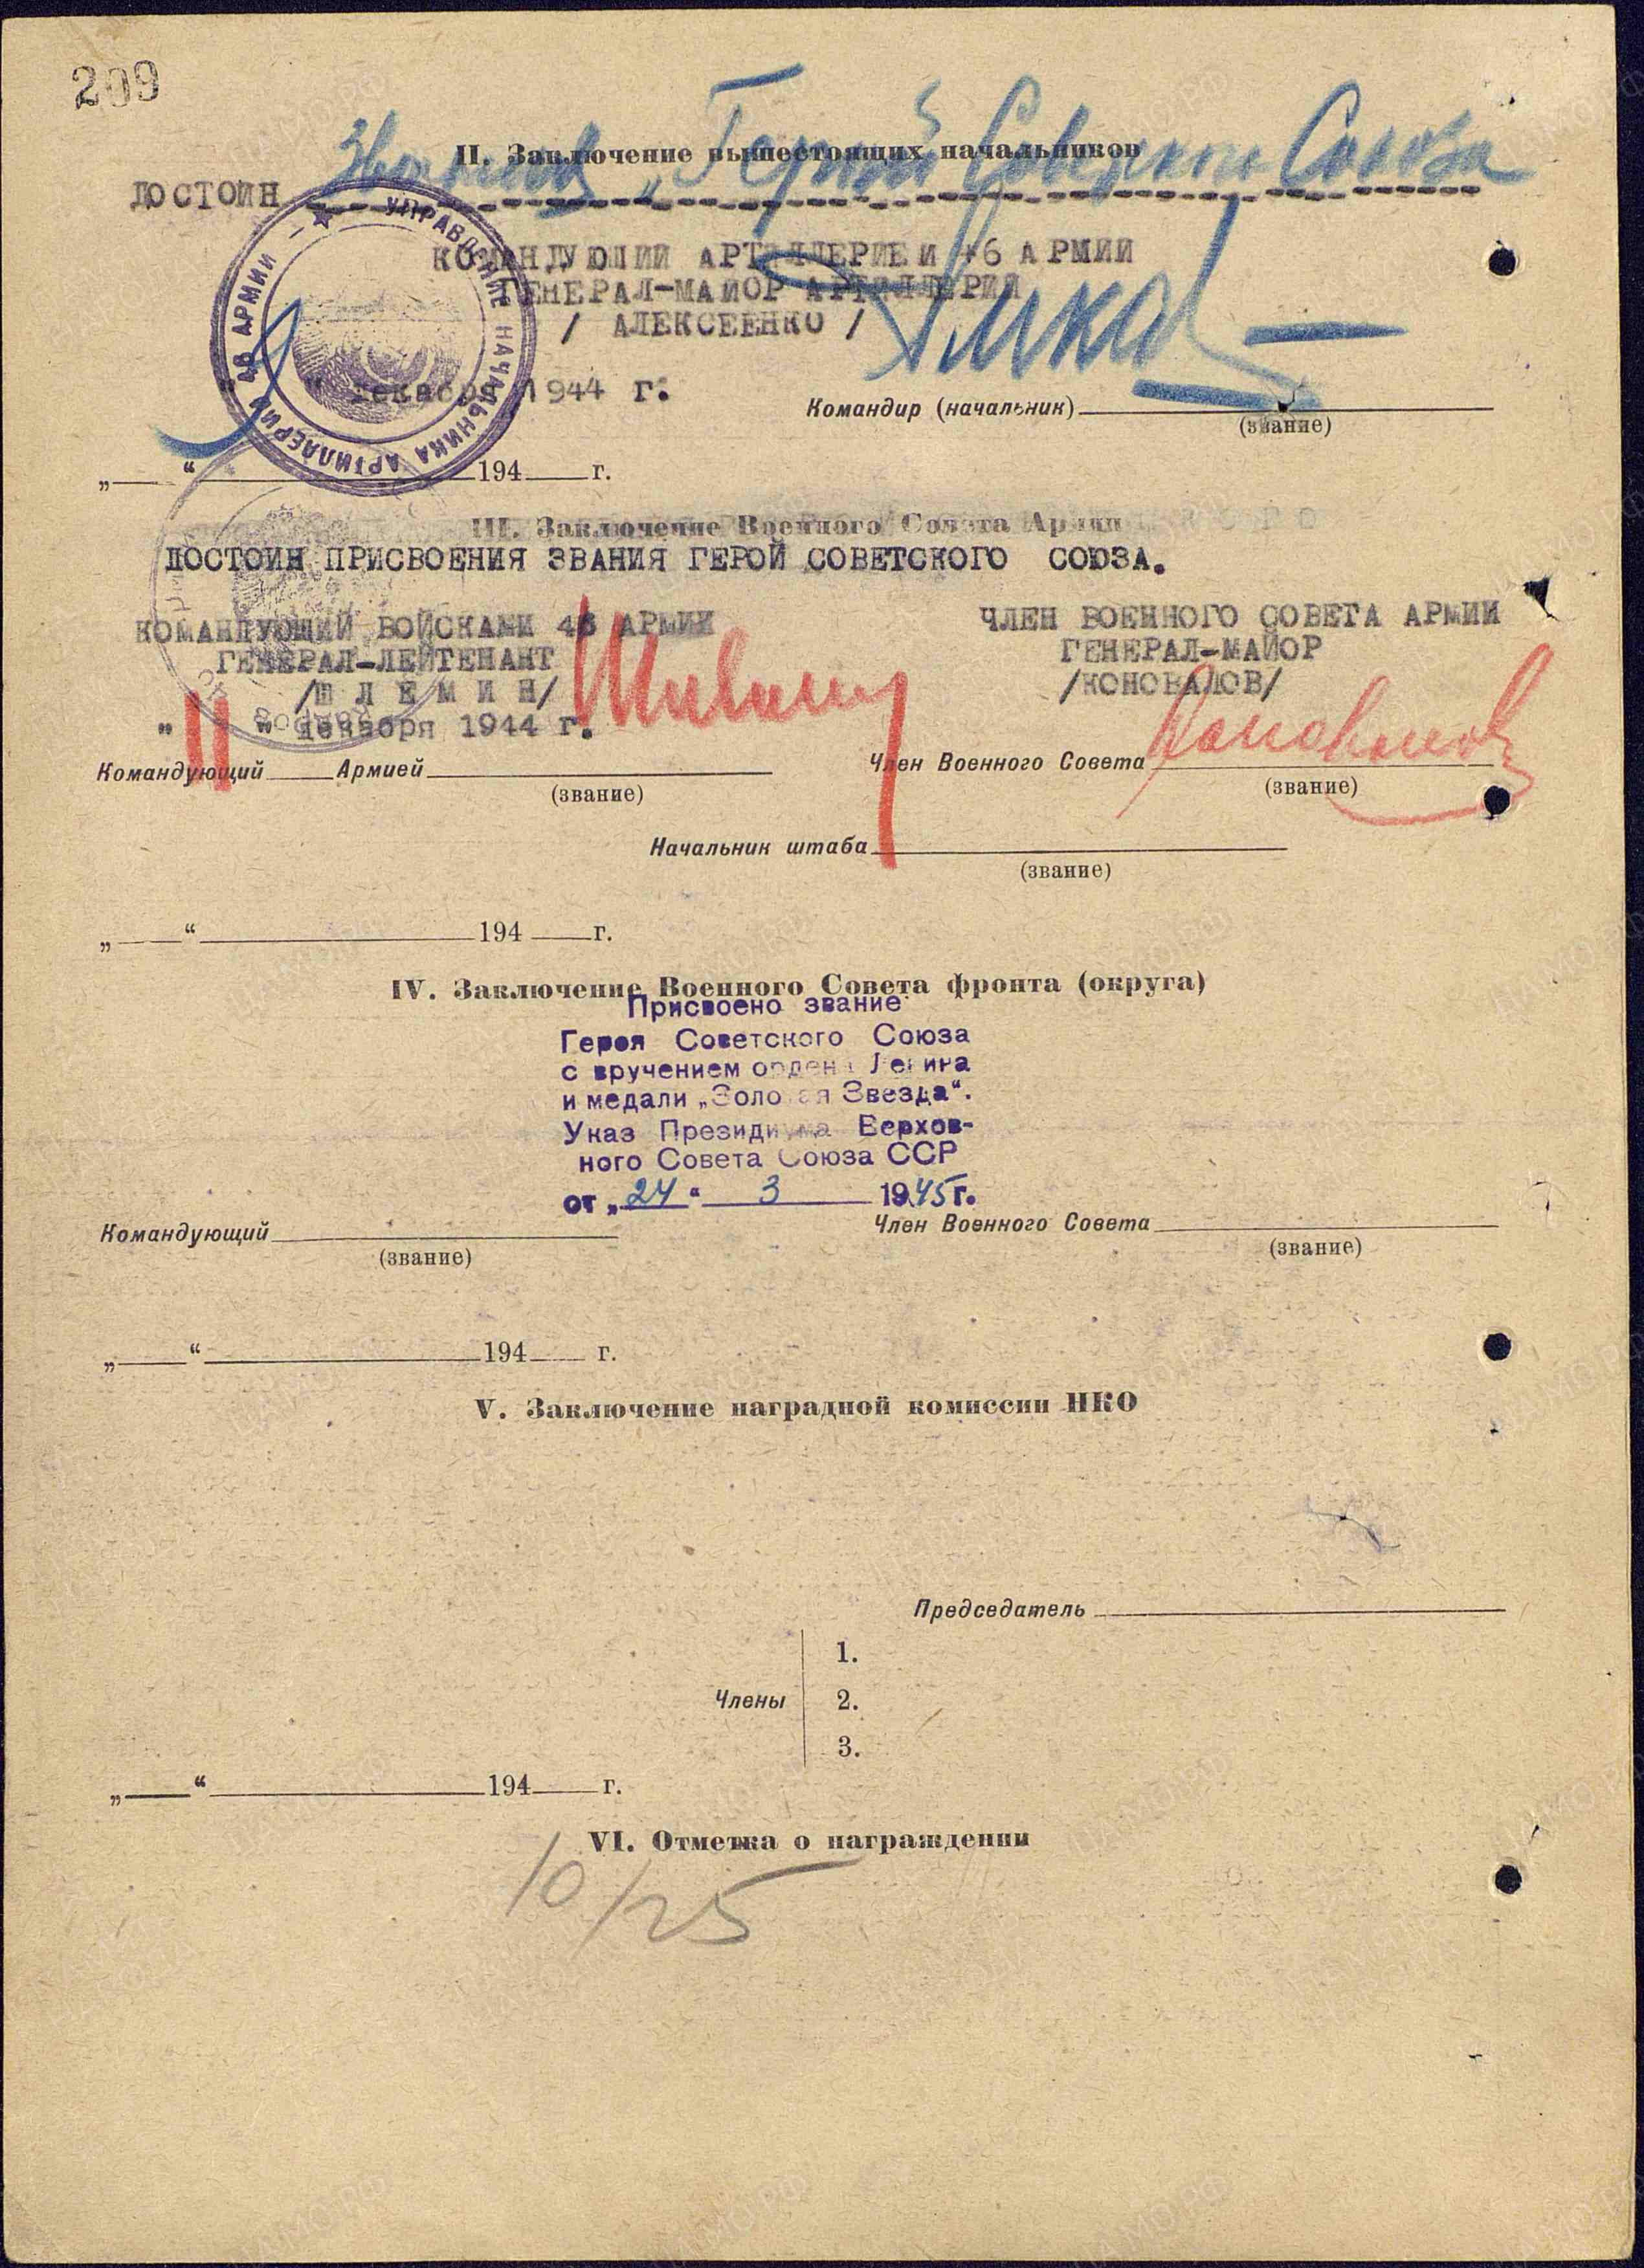 209
II. Заключение вышестоящих начальников
ДОСТОИН звания „Герой Советского Союза
КОМАНДУЮЩИЙ АРТИЛЛЕРИЕЙ 46 АРМИИ
ГЕНЕРАЛ-МАЙОР АРТИЛЛЕРИИ
/ АЛЕКСЕЕНКО /
УПРАВЛЕНИЕ НАЧАЛЬНИКА АРТИЛЛЕРИИ 46 АРМИИ
" " декабря 1944 г.
Командир (начальник)
(звание)
„ “ 194 г.
III. Заключение Военного Совета Армии
ДОСТОИН ПРИСВОЕНИЯ ЗВАНИЯ ГЕРОЙ СОВЕТСКОГО СОЮЗА.
КОМАНДУЮЩИЙ ВОЙСКАМИ 46 АРМИИ ЧЛЕН ВОЕННОГО СОВЕТА АРМИИ
ГЕНЕРАЛ-ЛЕЙТЕНАНТ ГЕНЕРАЛ-МАЙОР
/Ш Л Е М И Н/ /КОНОВАЛОВ/
" 11 " декабря 1944 г.
Командующий Армией Член Военного Совета
(звание) (звание)
Начальник штаба
(звание)
„ “ 194 г.
IV. Заключение Военного Совета фронта (округа)
Присвоено звание
Героя Советского Союза
с вручением ордена Ленина
и медали „Золотая Звезда“.
Указ Президиума Верхов-
ного Совета Союза ССР
от „24“ 3 1945 г.
Командующий Член Военного Совета
(звание) (звание)
„ “ 194 г.
V. Заключение наградной комиссии НКО
Председатель
1.
Члены 2.
3.
„ “ 194 г.
VI. Отметка о награждении
10/25